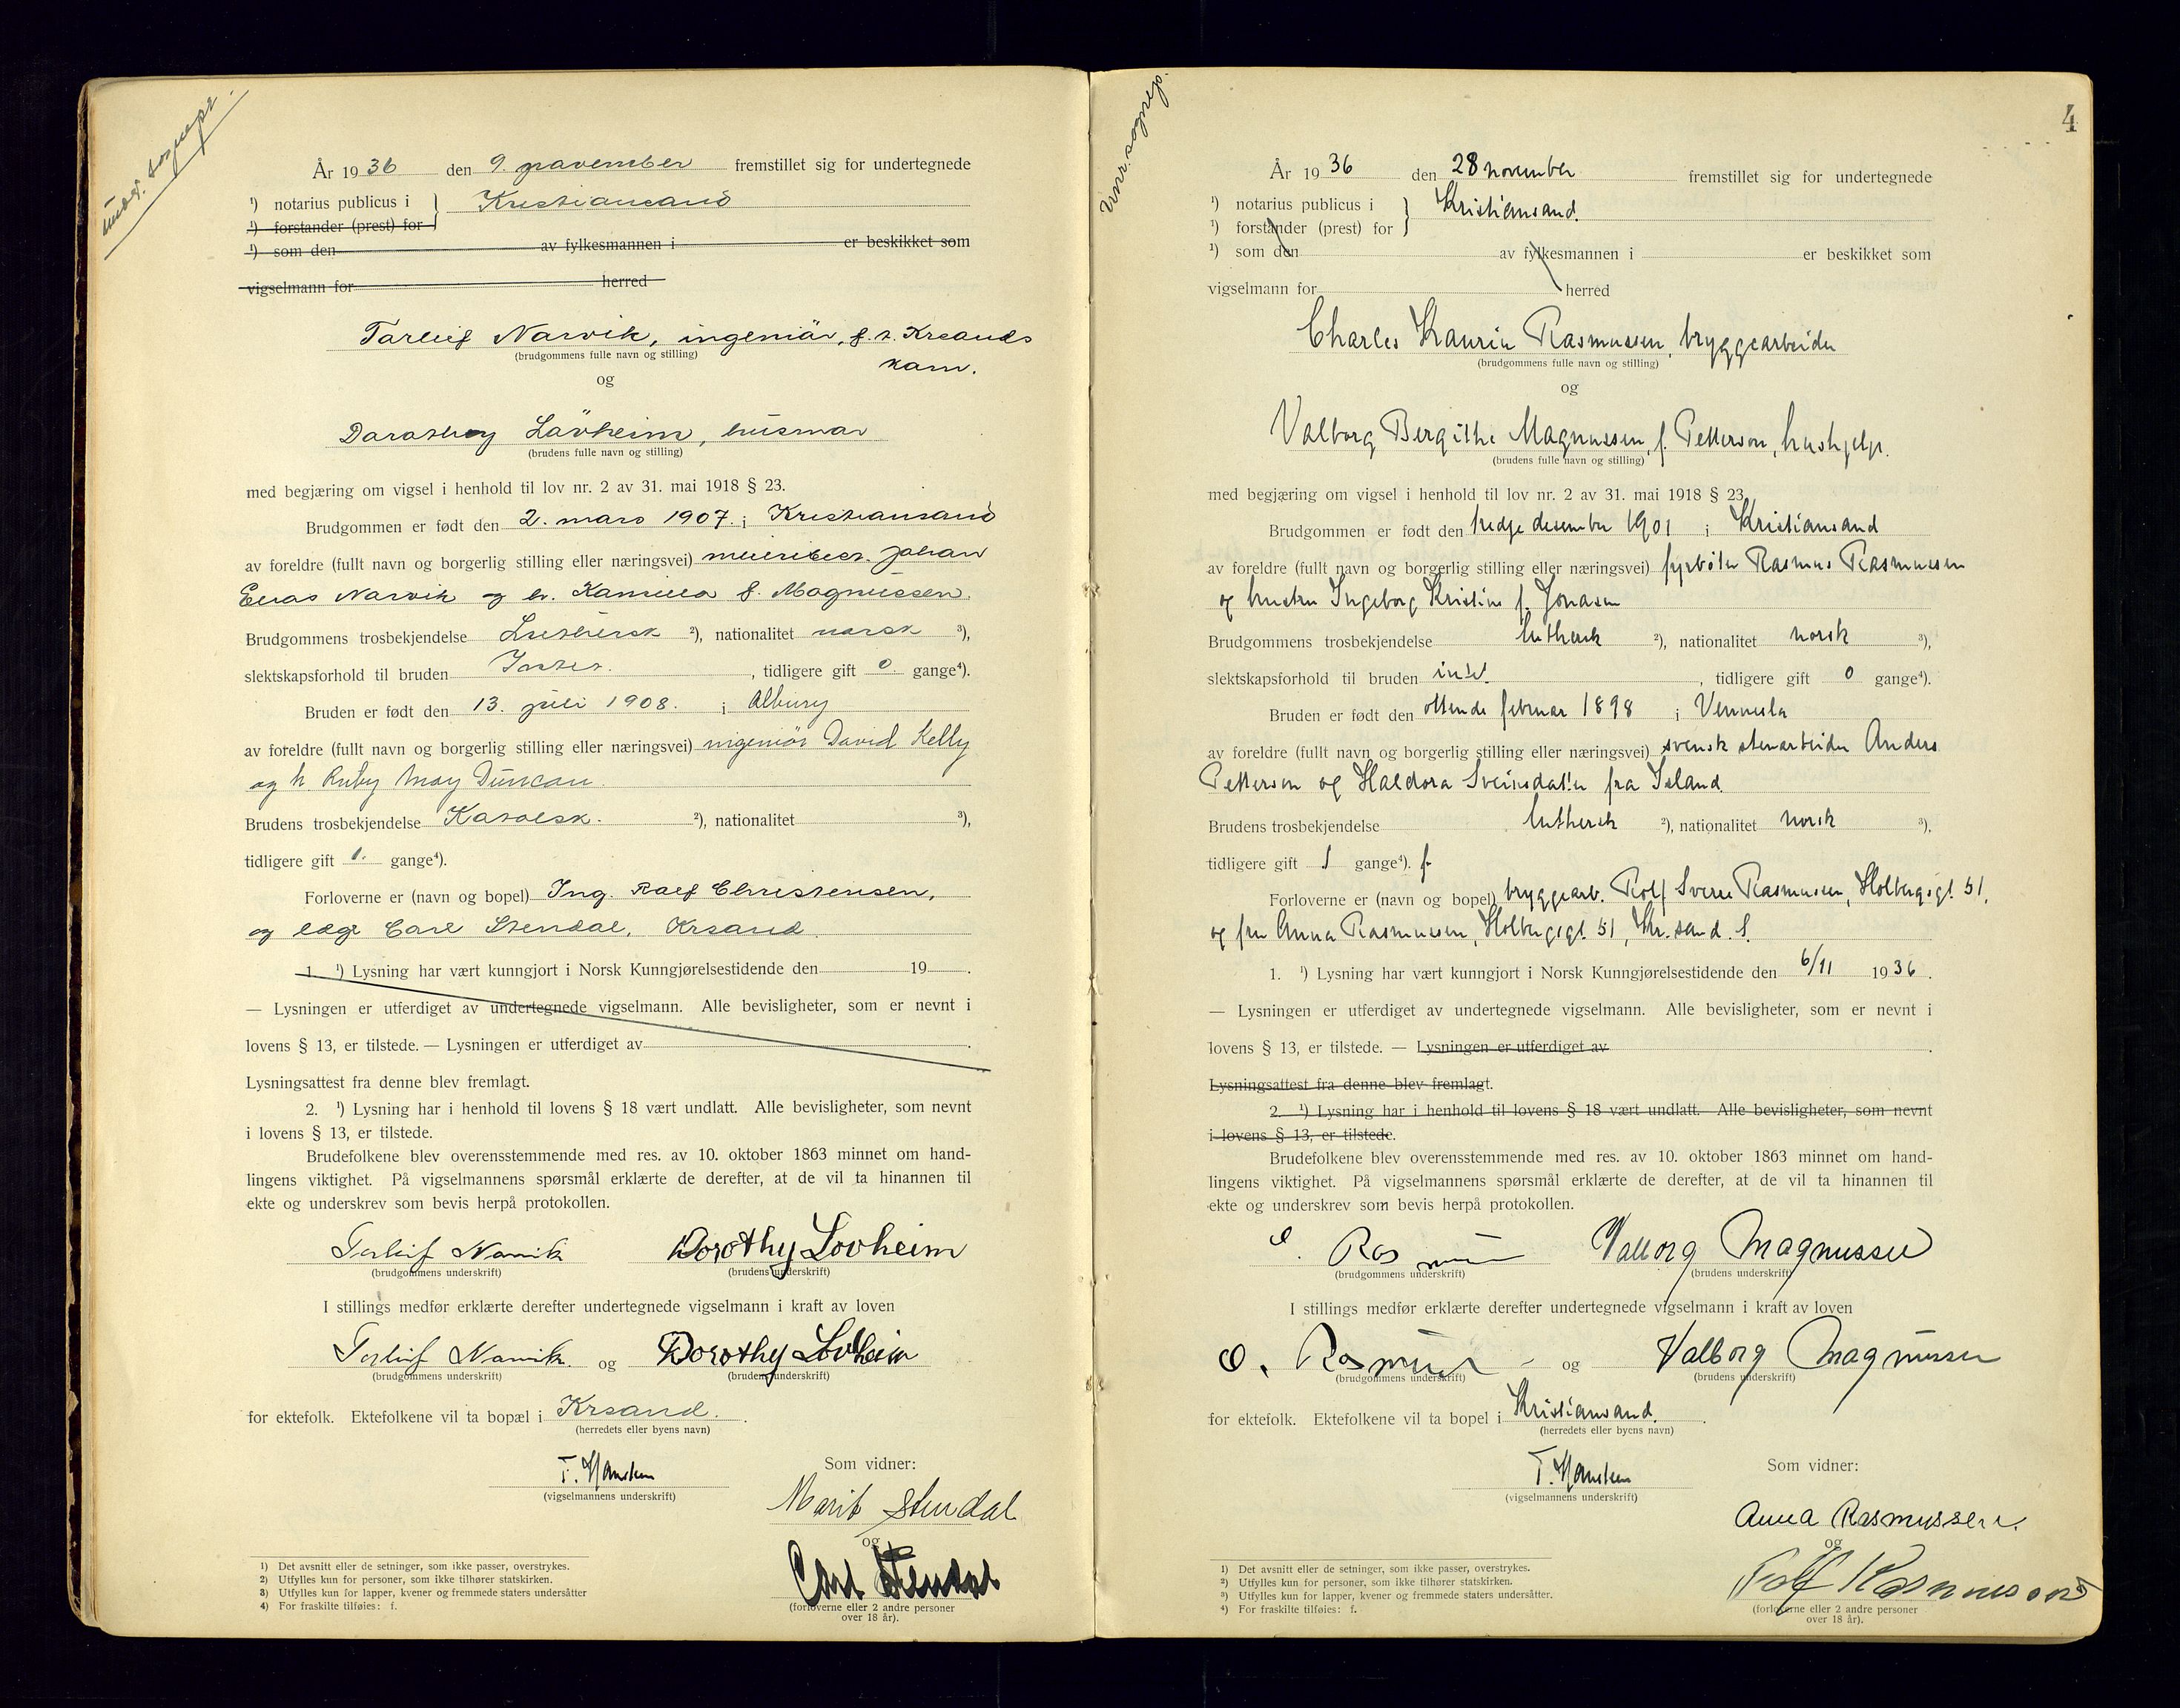 År 1936 den 9. november fremstillet sig for undertegnede
¹) notarius publicus i } Kristiansand
¹) forstander (prest) for
¹) som den av fylkesmannen i er beskikket som
vigselmann for herred
Torleif Narvik, ingeniør, f.t. Krsands
(brudgommens fulle navn og stilling)
kom.
og
Dorothy Lövheim, husmor
(brudens fulle navn og stilling)
med begjæring om vigsel i henhold til lov nr. 2 av 31. mai 1918 § 23.
Brudgommen er født den 2. mars 1907. i Kristiansand
av foreldre (fullt navn og borgerlig stilling eller næringsvei) meieribest. Johan
Elias Narvik og h. Kamilla f. Magnussen.
Brudgommens trosbekjendelse Luthersk ²), nationalitet norsk ³),
slektskapsforhold til bruden Intet. , tidligere gift 0 gange⁴).
Bruden er født den 13. juli 1908. i Albury
av foreldre (fullt navn og borgerlig stilling eller næringsvei) ingeniör David Kelly
og h. Ruby May Duncan.
Brudens trosbekjendelse Katolsk. ²), nationalitet ³),
tidligere gift 1. gange⁴).
Forloverne er (navn og bopel) Ing. Rolf Christensen,
og læge Carl Stendal, Krsand.
1. ¹) Lysning har vært kunngjort i Norsk Kunngjørelsestidende den 19 .
— Lysningen er utferdiget av undertegnede vigselmann. Alle bevisligheter, som er nevnt i
lovens § 13, er tilstede. — Lysningen er utferdiget av .
Lysningsattest fra denne blev fremlagt.
2. ¹) Lysning har i henhold til lovens § 18 vært undlatt. Alle bevisligheter, som nevnt
i lovens § 13, er tilstede.
Brudefolkene blev overensstemmende med res. av 10. oktober 1863 minnet om hand-
lingens viktighet. På vigselmannens spørsmål erklærte de derefter, at de vil ta hinannen til
ekte og underskrev som bevis herpå protokollen.
Torleif Narvik Dorothy Lovheim
(brudgommens underskrift) (brudens underskrift)
I stillings medfør erklærte derefter undertegnede vigselmann i kraft av loven
Torleif Narvik. og Dorothy Lovheim
(brudgommens underskrift) (brudens underskrift)
for ektefolk. Ektefolkene vil ta bopæl i Krsand. .
(herredets eller byens navn)
T. Hansken
(vigselmannens underskrift)
Som vidner:
Marit Stendal
og
Carl Stendal
(forloverne eller 2 andre personer
over 18 år).
1) Det avsnitt eller de setninger, som ikke passer, overstrykes.
2) Utfylles kun for personer, som ikke tilhører statskirken.
3) Utfylles kun for lapper, kvener og fremmede staters undersåtter
4) For fraskilte tilføies: f.
4
År 1936 den 28 november fremstillet sig for undertegnede
¹) notarius publicus i } Kristiansand.
¹) forstander (prest) for
¹) som den av fylkesmannen i er beskikket som
vigselmann for herred
Charles Laurin Rasmussen, bryggearbeider
(brudgommens fulle navn og stilling)
og
Valborg Bergithe Magnussen, f. Petterson, hushjelp.
(brudens fulle navn og stilling)
med begjæring om vigsel i henhold til lov nr. 2 av 31. mai 1918 § 23.
Brudgommen er født den tredje desember 1901 i Kristiansand
av foreldre (fullt navn og borgerlig stilling eller næringsvei) fyrböter Rasmus Rasmussen
og hustru Ingeborg Kristine f. Jonasen
Brudgommens trosbekjendelse luthersk ²), nationalitet norsk ³),
slektskapsforhold til bruden intet. , tidligere gift 0 gange⁴).
Bruden er født den ottende februar 1898 i Vennesla
av foreldre (fullt navn og borgerlig stilling eller næringsvei) svensk stenarbeider Anders
Petterson og Haldora Sveinsdatter fra Island.
Brudens trosbekjendelse luthersk ²), nationalitet norsk ³),
tidligere gift 1 gange⁴). f.
Forloverne er (navn og bopel) bryggearb. Rolf Sverre Rasmussen, Holbergsgt. 51,
og fru Anna Rasmussen, Holbergsgt. 51, Kr.sand. S.
1. ¹) Lysning har vært kunngjort i Norsk Kunngjørelsestidende den 6/11 1936.
— Lysningen er utferdiget av undertegnede vigselmann. Alle bevisligheter, som er nevnt i
lovens § 13, er tilstede. — Lysningen er utferdiget av .
Lysningsattest fra denne blev fremlagt.
2. ¹) Lysning har i henhold til lovens § 18 vært undlatt. Alle bevisligheter, som nevnt
i lovens § 13, er tilstede.
Brudefolkene blev overensstemmende med res. av 10. oktober 1863 minnet om hand-
lingens viktighet. På vigselmannens spørsmål erklærte de derefter, at de vil ta hinannen til
ekte og underskrev som bevis herpå protokollen.
Valborg Magnussen
(brudgommens underskrift) (brudens underskrift)
I stillings medfør erklærte derefter undertegnede vigselmann i kraft av loven
og Valborg Magnussen
(brudgommens underskrift) (brudens underskrift)
for ektefolk. Ektefolkene vil ta bopel i Kristiansand. .
(herredets eller byens navn)
T. Hansken
(vigselmannens underskrift)
Som vidner:
Anna Rasmussen.
og
Rolf Rasmussen
(forloverne eller 2 andre personer
over 18 år).
¹) Det avsnitt eller de setninger, som ikke passer, overstrykes.
²) Utfylles kun for personer, som ikke tilhører statskirken.
³) Utfylles kun for lapper, kvener og fremmede staters undersåtter.
⁴) For fraskilte tilføies: f.